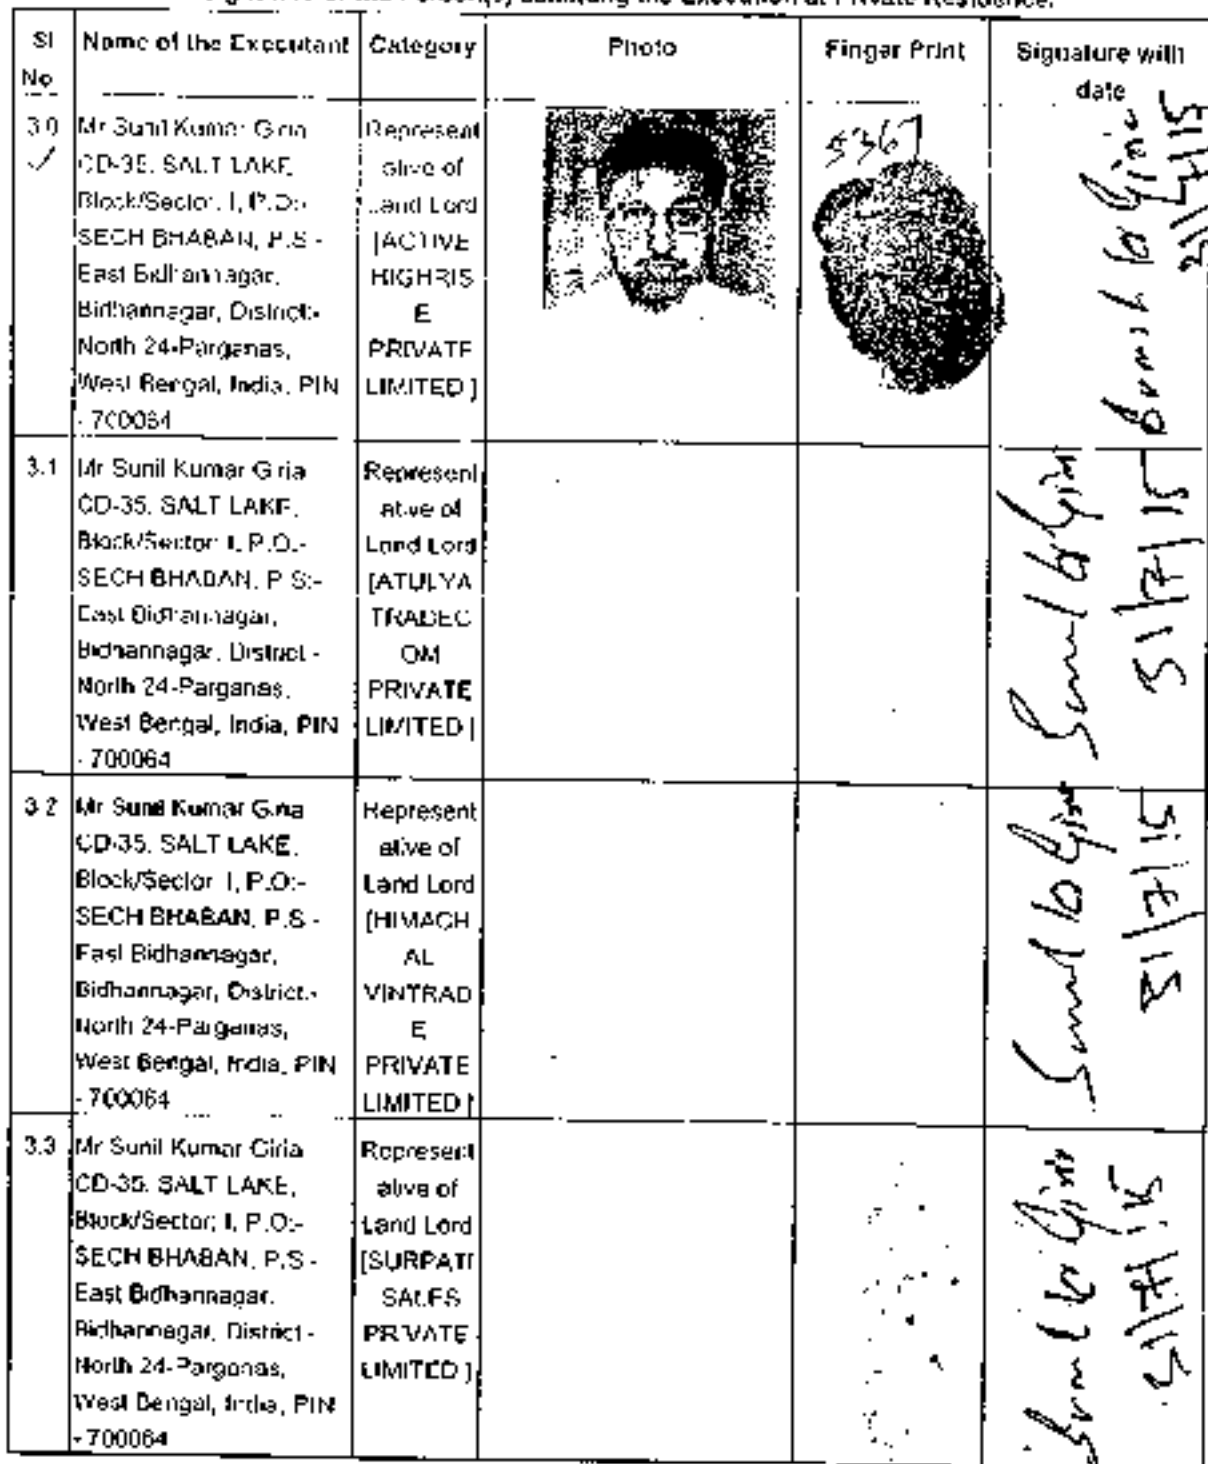 Signature of the Person(s) admitting the Execution at Private Residence.
Sl No
Name of the Executant
Category
Photo
Finger Print
Signature with date
3.0
Mr Sunil Kumar Giria
CD-35, SALT LAKE,
Block/Sector: I, P.O:-
SECH BHABAN, P.S:-
East Bidhannagar,
Bidhannagar, District:-
North 24-Parganas,
West Bengal, India, PIN
- 700064
Represent
ative of
Land Lord
[ACTIVE
HIGHRIS
E
PRIVATE
LIMITED ]
5367
31/7/15
3.1
Mr Sunil Kumar Giria
CD-35, SALT LAKE,
Block/Sector: I, P.O:-
SECH BHABAN, P.S:-
East Bidhannagar,
Bidhannagar, District:-
North 24-Parganas,
West Bengal, India, PIN
- 700064
Represent
ative of
Land Lord
[ATULYA
TRADEC
OM
PRIVATE
LIMITED ]
31/7/15
3.2
Mr Sunil Kumar Giria
CD-35, SALT LAKE,
Block/Sector: I, P.O:-
SECH BHABAN, P.S:-
East Bidhannagar,
Bidhannagar, District:-
North 24-Parganas,
West Bengal, India, PIN
- 700064
Represent
ative of
Land Lord
[HIMACH
AL
VINTRAD
E
PRIVATE
LIMITED ]
31/7/15
3.3
Mr Sunil Kumar Giria
CD-35, SALT LAKE,
Block/Sector: I, P.O:-
SECH BHABAN, P.S:-
East Bidhannagar,
Bidhannagar, District:-
North 24-Parganas,
West Bengal, India, PIN
- 700064
Represent
ative of
Land Lord
[SURPATI
SALES
PRIVATE
LIMITED ]
31/7/15